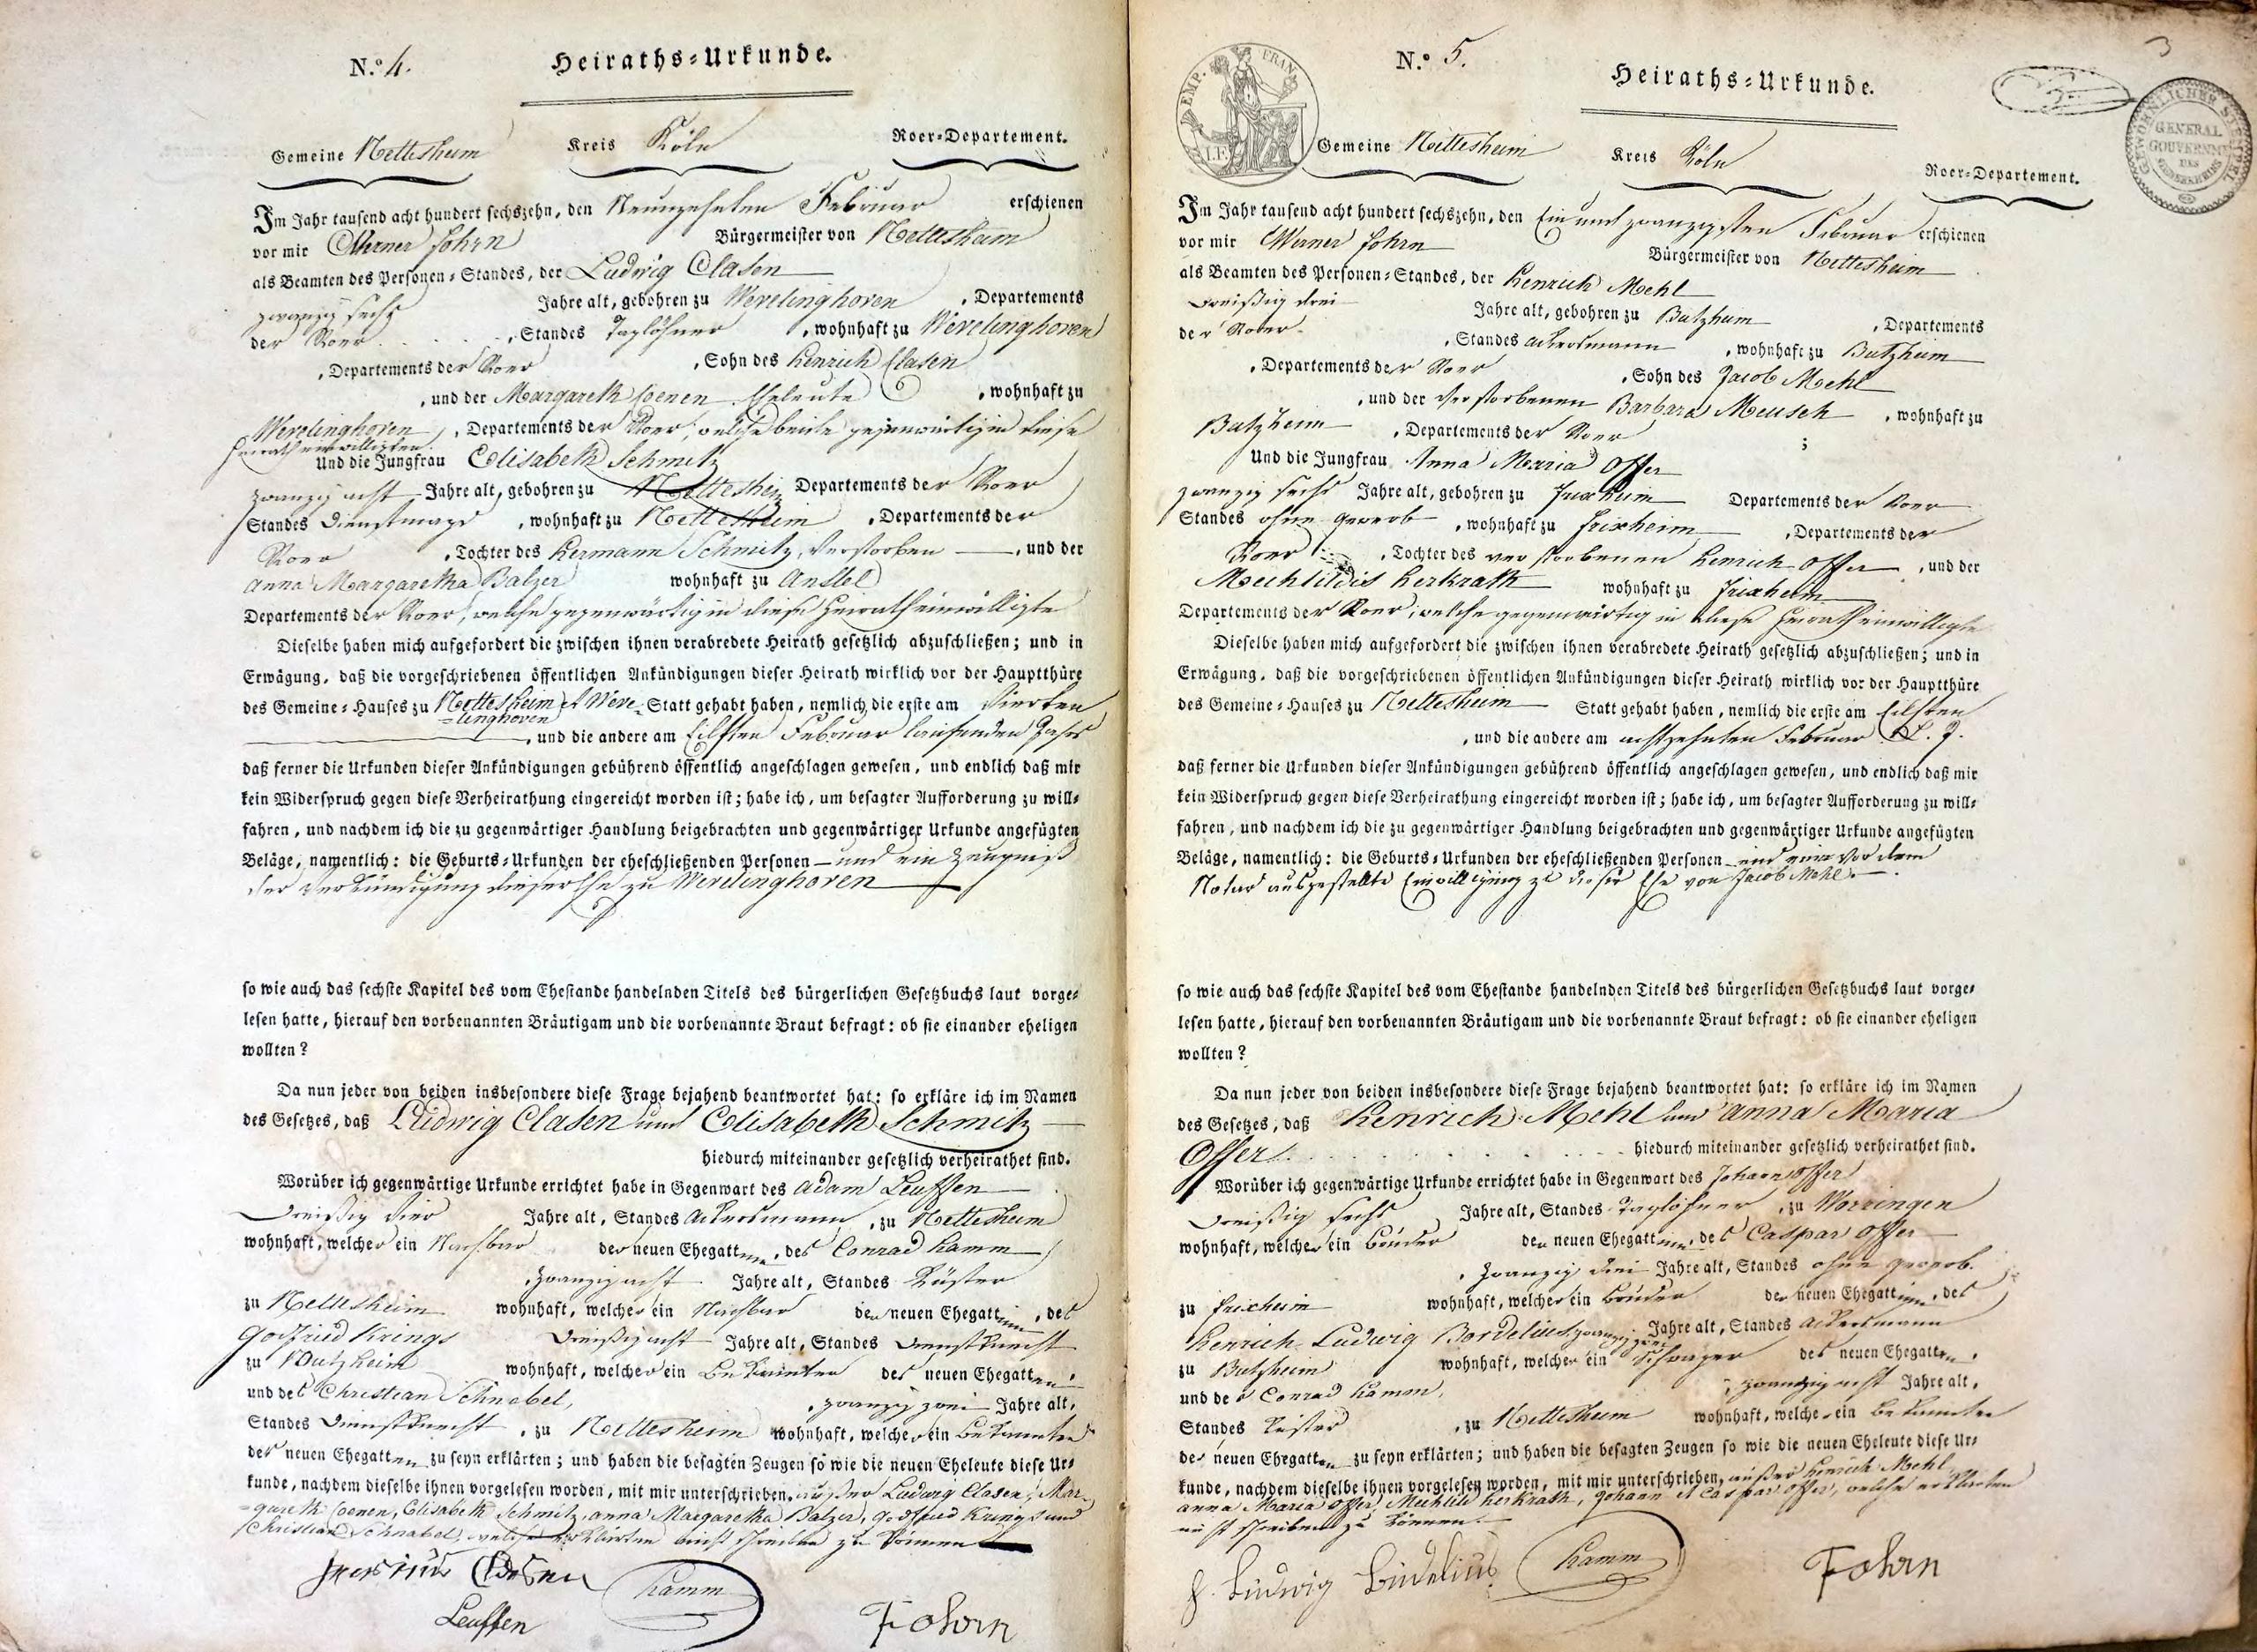 N.º 4.
Heiraths-Urkunde.
Gemeine Nettesheim Kreis Köln Roer-Departement.
Im Jahr tausend acht hundert sechszehn, den Neunzehnten Februar erschienen
vor mir Werner Fohrn Bürgermeister von Nettesheim
als Beamten des Personen-Standes, der Ludwig Clasen
zwanzig sechs Jahre alt, gebohren zu Wevelinghoven, Departements
der Roer, Standes Taglöhner, wohnhaft zu Wevelinghoven
, Departements der Roer, Sohn des Henrich Clasen
, und der Margareth Coenen Eheleute, wohnhaft zu
Wevelinghoven, Departements der Roer, welche beide gegenwärtig in diese
Heirath einwilligten.
Und die Jungfrau Elisabeth Schmitz
zwanzig acht Jahre alt, gebohren zu Nettesheim Departements der Roer
Standes Dienstmagd, wohnhaft zu Nettesheim, Departements der
Roer, Tochter des Hermann Schmitz, verstorben, und der
Anna Margaretha Balzer wohnhaft zu Anstel
Departements der Roer, welche gegenwärtig in diese Heirath einwilligte
Dieselbe haben mich aufgefordert die zwischen ihnen verabredete Heirath gesetzlich abzuschließen; und in
Erwägung, daß die vorgeschriebenen öffentlichen Ankündigungen dieser Heirath wirklich vor der Hauptthüre
des Gemeine-Hauses zu Nettesheim et Weve- Statt gehabt haben, nemlich die erste am vierten
=linghoven
, und die andere am Eilften Februar laufenden Jahrs
daß ferner die Urkunden dieser Ankündigungen gebührend öffentlich angeschlagen gewesen, und endlich daß mir
kein Widerspruch gegen diese Verheirathung eingereicht worden ist; habe ich, um besagter Aufforderung zu will-
fahren, und nachdem ich die zu gegenwärtiger Handlung beigebrachten und gegenwärtiger Urkunde angefügten
Beläge, namentlich: die Geburts-Urkunden der eheschließenden Personen — und ein Zeugniß
der Verkündigung dieser Ehe zu Wevelinghoven
so wie auch das sechste Kapitel des vom Ehestande handelnden Titels des bürgerlichen Gesetzbuchs laut vorge-
lesen hatte, hierauf den vorbenannten Bräutigam und die vorbenannte Braut befragt: ob sie einander eheligen
wollten?
Da nun jeder von beiden insbesondere diese Frage bejahend beantwortet hat: so erkläre ich im Namen
des Gesetzes, daß Ludwig Clasen und Elisabeth Schmitz
hiedurch miteinander gesetzlich verheirathet sind.
Worüber ich gegenwärtige Urkunde errichtet habe in Gegenwart des Adam Leuffen
Dreißig vier Jahre alt, Standes Ackersmann, zu Nettesheim
wohnhaft, welcher ein Nachbar der neuen Ehegattinn, des Conrad Hamm
, zwanzig acht Jahre alt, Standes Küster
zu Nettesheim wohnhaft, welcher ein Nachbar der neuen Ehegattinn, des
Godfried Krings Dreißig acht Jahre alt, Standes Dienstknecht
zu Butzheim wohnhaft, welcher ein Bekannter des neuen Ehegatten,
und des Christian Schnabel, , zwanzig zwei Jahre alt,
Standes Dienstknecht, zu Nettesheim wohnhaft, welcher ein Bekannter
des neuen Ehegatten zu seyn erklärten; und haben die besagten Zeugen so wie die neuen Eheleute diese Ur-
kunde, nachdem dieselbe ihnen vorgelesen worden, mit mir unterschrieben, außer Ludwig Clasen, Mar-
=gareth Coenen, Elisabeth Schmitz, Anna Margaretha Balzer, Godfried Krings und
Christian Schnabel, welche erklärten nicht schreiben zu können
Hamm
Leuffen
Fohrn
3
N.º 5.
Heiraths-Urkunde.
EMP. FRAN
GENERAL
GOUVERNEMT
DES
NIEDERRHEINS
Gemeine Nettesheim Kreis Köln Roer-Departement.
Im Jahr tausend acht hundert sechszehn, den Ein und zwanzigsten Februar erschienen
vor mir Werner Fohrn Bürgermeister von Nettesheim
als Beamten des Personen-Standes, der Henrich Mehl
Dreißig drei Jahre alt, gebohren zu Butzheim, Departements
der Roer, Standes Ackersmann, wohnhaft zu Butzheim
, Departements der Roer, Sohn des Jacob Mehl
, und der verstorbenen Barbara Meusch, wohnhaft zu
Butzheim, Departements der Roer ;
Und die Jungfrau Anna Maria Offer
zwanzig sechs Jahre alt, gebohren zu Frixheim Departements der Roer
Standes ohne Gewerb, wohnhaft zu Frixheim, Departements der
Roer, Tochter des verstorbenen Henrich Offer, und der
Mechtildis Herkrath wohnhaft zu Frixheim
Departements der Roer, welche gegenwärtig in diese Heirath einwilligte
Dieselbe haben mich aufgefordert die zwischen ihnen verabredete Heirath gesetzlich abzuschließen; und in
Erwägung, daß die vorgeschriebenen öffentlichen Ankündigungen dieser Heirath wirklich vor der Hauptthüre
des Gemeine-Hauses zu Nettesheim Statt gehabt haben, nemlich die erste am Eilften
, und die andere am achtzehnten Februar l. J.
daß ferner die Urkunden dieser Ankündigungen gebührend öffentlich angeschlagen gewesen, und endlich daß mir
kein Widerspruch gegen diese Verheirathung eingereicht worden ist; habe ich, um besagter Aufforderung zu will-
fahren, und nachdem ich die zu gegenwärtiger Handlung beigebrachten und gegenwärtiger Urkunde angefügten
Beläge, namentlich: die Geburts-Urkunden der eheschließenden Personen und eine vor dem
Notar ausgestellte Einwilligung zu dieser Ehe von Jacob Mehl.
so wie auch das sechste Kapitel des vom Ehestande handelnden Titels des bürgerlichen Gesetzbuchs laut vorge-
lesen hatte, hierauf den vorbenannten Bräutigam und die vorbenannte Braut befragt: ob sie einander eheligen
wollten?
Da nun jeder von beiden insbesondere diese Frage bejahend beantwortet hat: so erkläre ich im Namen
des Gesetzes, daß Henrich Mehl und Anna Maria
Offer hiedurch miteinander gesetzlich verheirathet sind.
Worüber ich gegenwärtige Urkunde errichtet habe in Gegenwart des Johann Offer
Dreißig sechs Jahre alt, Standes Taglöhner, zu Worringen
wohnhaft, welcher ein Bruder der neuen Ehegattinn, des Caspar Offer
, zwanzig drei Jahre alt, Standes ohne Gewerb.
zu Frixheim wohnhaft, welcher ein Bruder der neuen Ehegattinn, des
Henrich Ludwig Bordelius, Jahre alt, Standes Ackersmann
zu Butzheim wohnhaft, welcher ein Schwager des neuen Ehegatten,
und des Conrad Hamm, , zwanzig acht Jahre alt,
Standes Küster, zu Nettesheim wohnhaft, welcher ein Bekannter
des neuen Ehegatten zu seyn erklärten; und haben die besagten Zeugen so wie die neuen Eheleute diese Ur-
kunde, nachdem dieselbe ihnen vorgelesen worden, mit mir unterschrieben, außer Henrich Mehl
Anna Maria Offer, Mechtild Herkrath, Johann et Caspar Offer, welche erklärten
nicht schreiben zu können.
Ludwig
Hamm
Fohrn